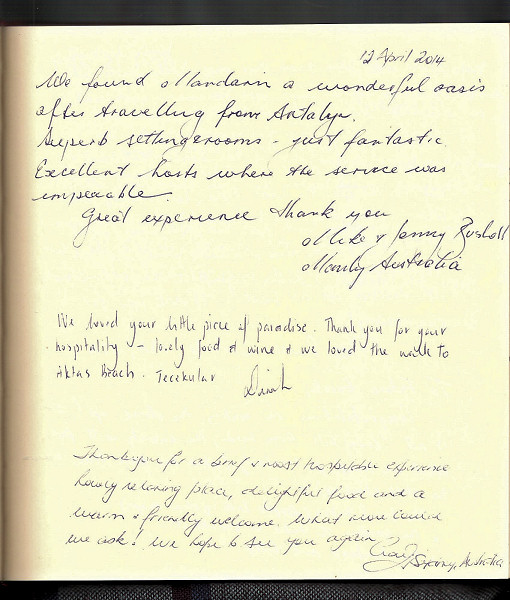 12 April 2014
We found Mandarin a wonderful oasis
after travelling from Antalya.
Superb setting & rooms - just fantastic.
Excellent hosts where the service was
impecable.
Great experience thank you
Mike & Jenny
Manly Australia
We loved your little piece of paradise. Thank you for your
hospitality - lovely food & wine & we loved the walk to
Aktas Beach. Tecekular
Thankyou for a brief & most hospitable experience
relaxing place, delightful food and a
warm & friendly welcome. What more could
we ask! We hope to see you again
Craig Sydney, Australia